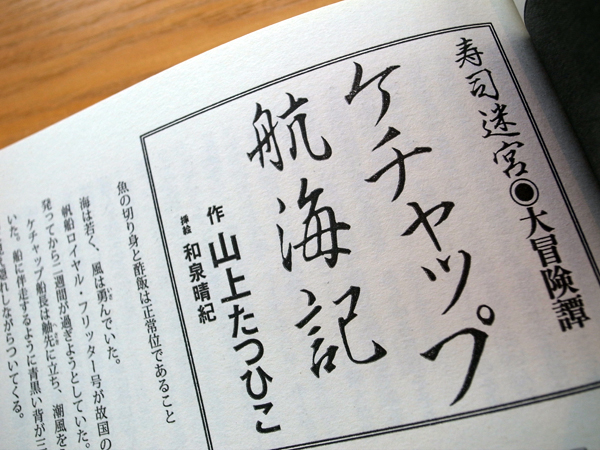 寿司迷宮◉大冒険譚
ケチャップ
航海記
作 山上たつひこ
挿絵 和泉晴紀
魚の切り身と酢飯は正常位であること
海は若く、風は勇んでいた。
帆船ロイヤル・フリッター号が故国の
発ってから二週間が過ぎようとしていた。
ケチャップ船長は舳先に立ち、潮風を
いた。船に伴走するように青黒い背が三
れしながらついてくる。